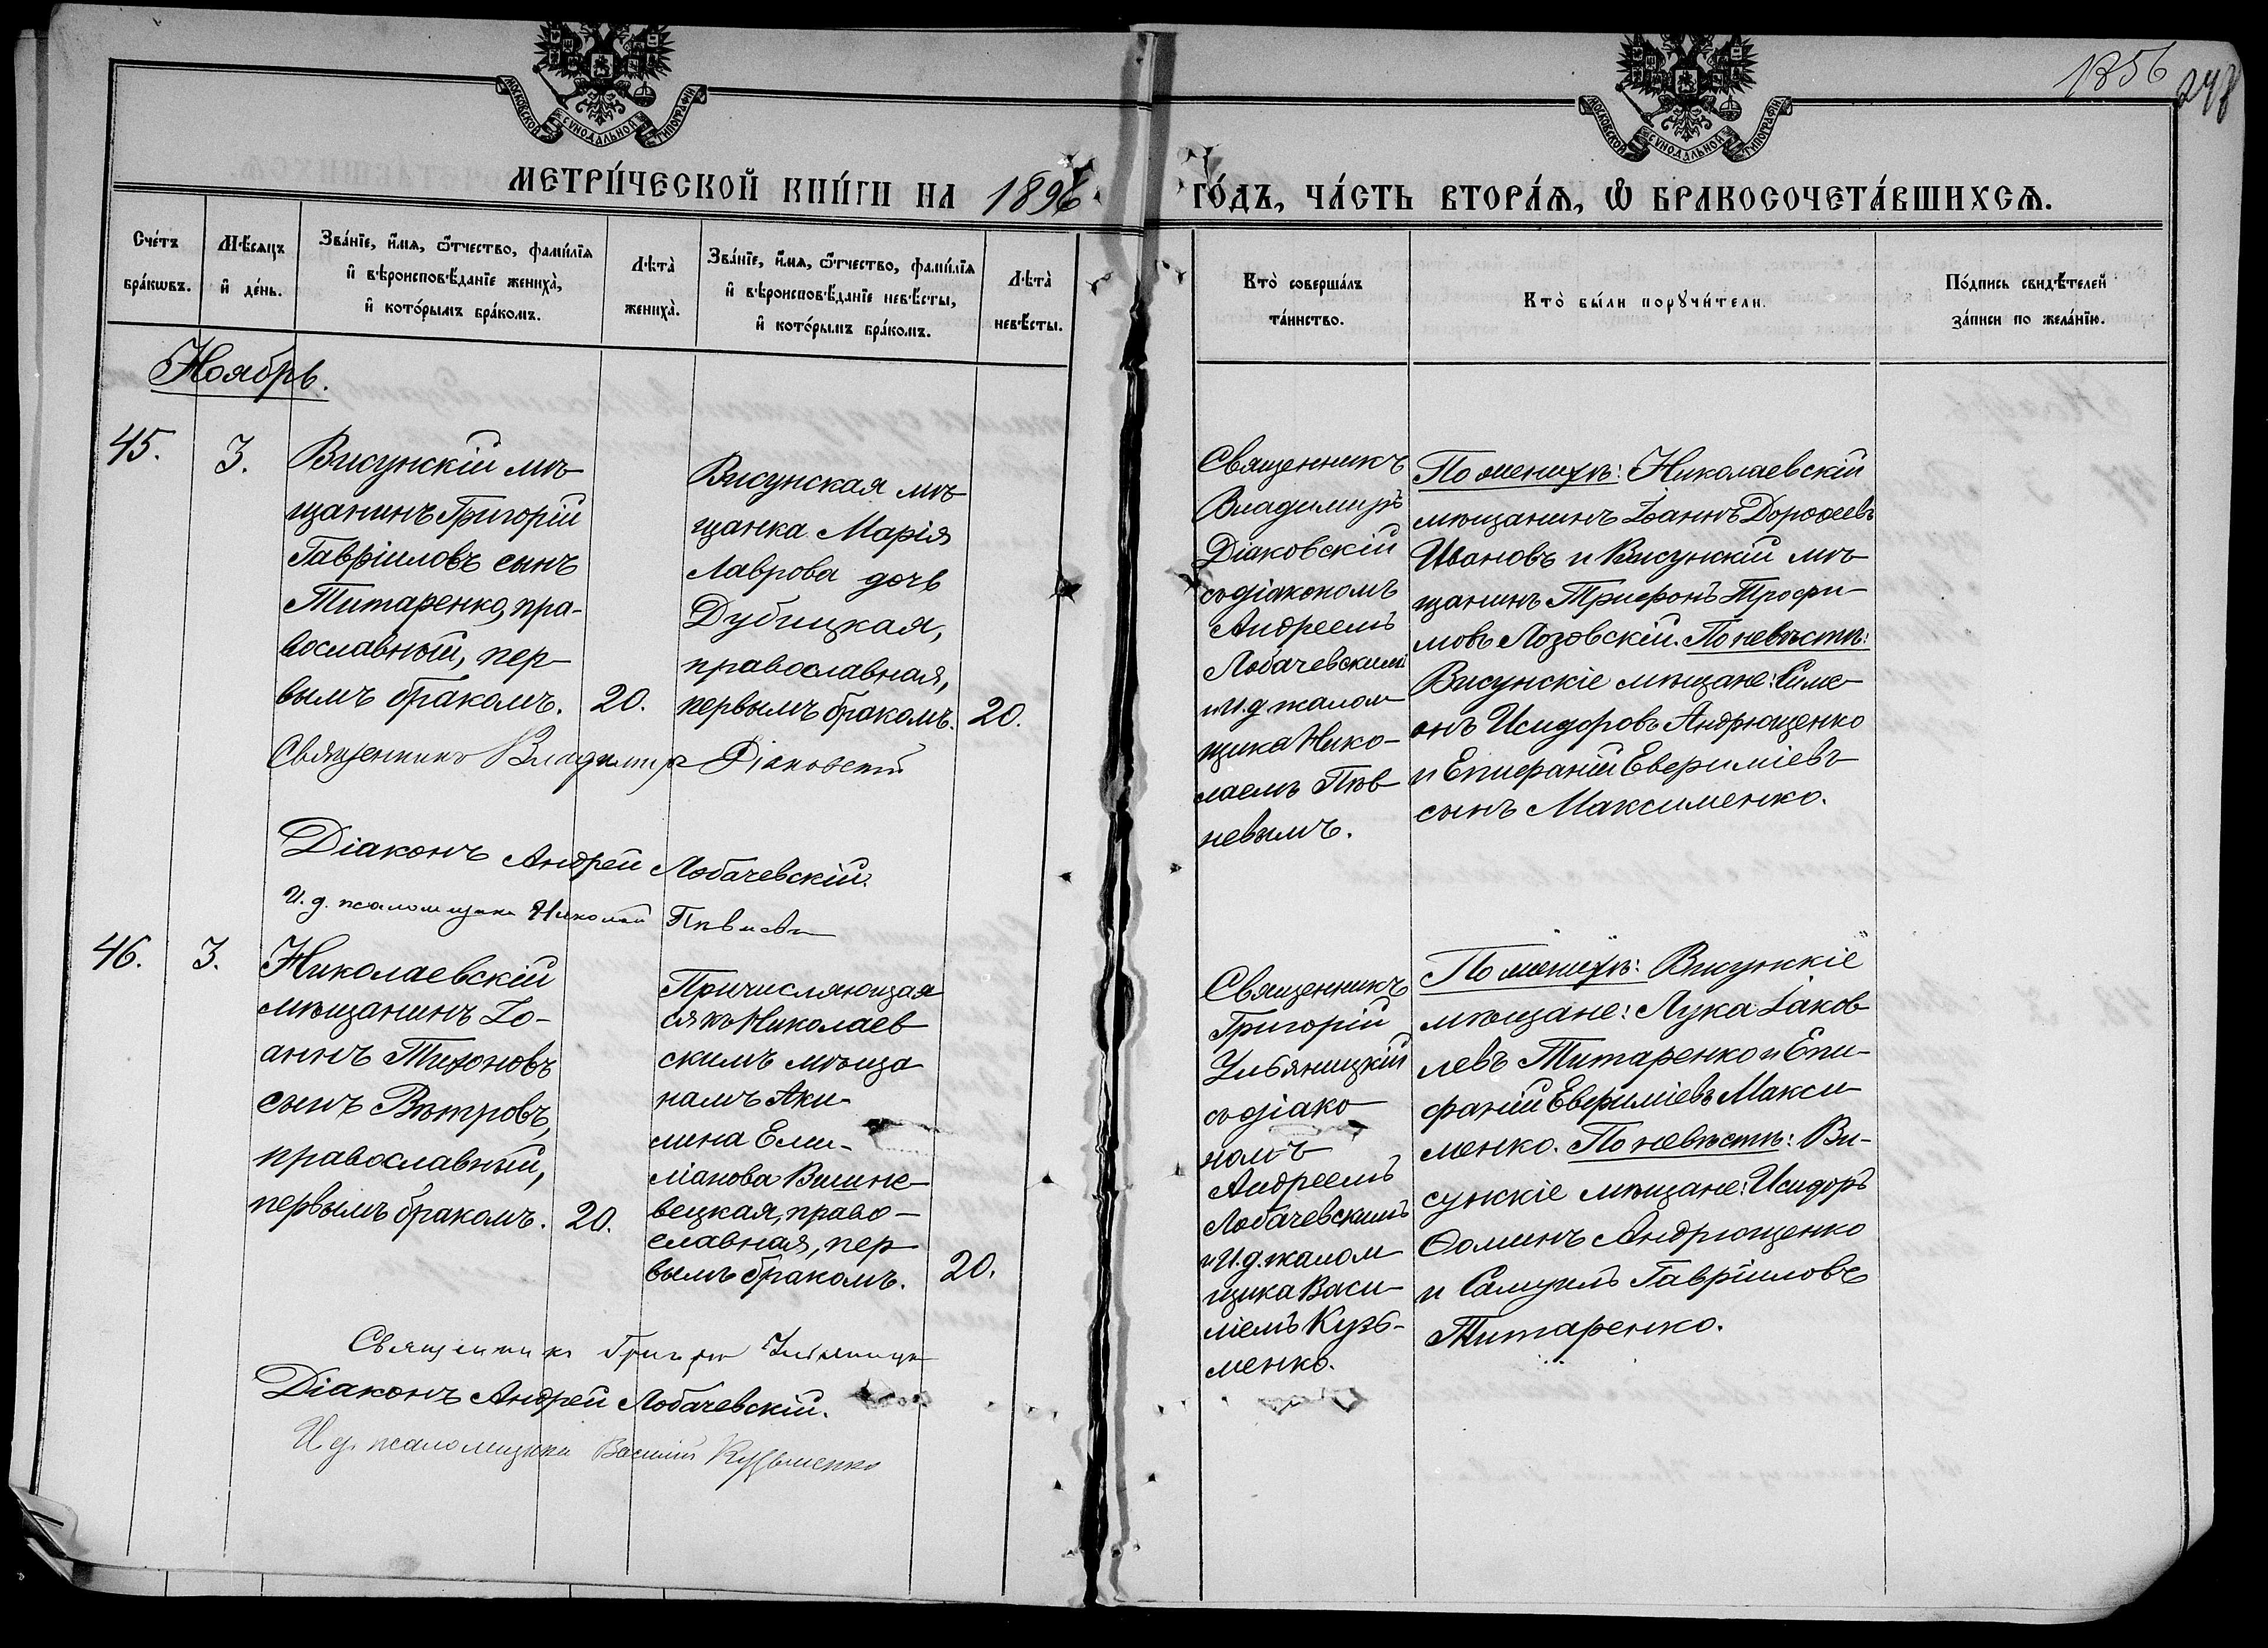 1356
248
МОСКОВСКОЙ СѴНОДАЛЬНОЙ ТИПОГРАФІИ
МОСКОВСКОЙ СѴНОДАЛЬНОЙ ТИПОГРАФІИ
МЕТРИ́ЧЕСКОЙ КНИ́ГИ НА 1896
ГО́ДЪ, ЧА́СТЬ ВТОРА́Ѧ, Ѽ БРАКОСОЧЕТА́ВШИХСѦ.
Сче́тъ
бра́кѡвъ.
Мѣ́сяцъ
и҆ де́нь.
Зва́нїе, и҆́мя, ѻ҆́тчество, фами́лїя
и҆ вѣроисповѣ́данїе жениха̀,
и҆ кото́рымъ бра́комъ.
Лѣта̀
жениха̀.
Зва́нїе, и҆́мя, ѻ҆́тчество, фами́лїя
и҆ вѣроисповѣ́данїе невѣ́сты,
и҆ кото́рымъ бра́комъ.
Лѣта̀
невѣ́сты.
Кто̀ соверша́лъ
та́инство.
Кто̀ бы́ли порꙋчи́тели.
По́дпись свидѣ́телей
за́писи по жела́нїю.
Ноябрь.
45.
3.
Висунскій мѣ-
щанинъ Григорій
Гавріиловъ сынъ
Титаренко, пра-
вославный, пер-
вымъ бракомъ.
20.
Висунская мѣ-
щанка Марія
Лаврова дочь
Дубицкая,
православная,
первымъ бракомъ.
20.
Священникъ
Владимиръ
Діаковскій
съ діакономъ
Андреемъ
Лобачевскимъ
и И.д. псалом-
щика Нико-
лаемъ Пѣв-
невымъ.
По женихѣ: Николаевскій
мѣщанинъ Іоаннъ Дороѳеевъ
Ивановъ и Висунскій мѣ-
щанинъ Трифонъ Трофи-
мовъ Лозовскій. По невѣстѣ:
Висунскіе мѣщане: Симе-
онъ Исидоровъ Андрющенко
и Епифаній Евфиміевъ
сынъ Максименко.
Священникъ Владимиръ Діаковскій
Діаконъ Андрей Лобачевскій.
И. д. псаломщика Николай Пѣвневъ
46.
3.
Николаевскій
мѣщанинъ Іо-
аннъ Тихоновъ
сынъ Вѣтровъ,
православный,
первымъ бракомъ.
20.
Причисляющая
ся къ Николаев-
скимъ мѣща-
намъ Аки-
лина Еми-
ліанова Вишне-
вецкая, право-
славная, пер-
вымъ бракомъ.
20.
Священникъ
Григорій
съ діако-
номъ
Андреемъ
Лобачевскимъ
и И.д. псалом-
щика Васи-
ліемъ Кузь-
менко.
По женихѣ: Висунскіе
мѣщане: Лука Іаков-
левъ Титаренко и Епи-
фаній Евфиміевъ Макси-
менко. По невѣстѣ: Ви-
сунскіе мѣщане: Исидоръ
Ѳоминъ Андрющенко
и Самуилъ Гавріиловъ
Титаренко.
Священникъ Григорій
Діаконъ Андрей Лобачевскій.
И д. псаломщика Василій Кузьменко